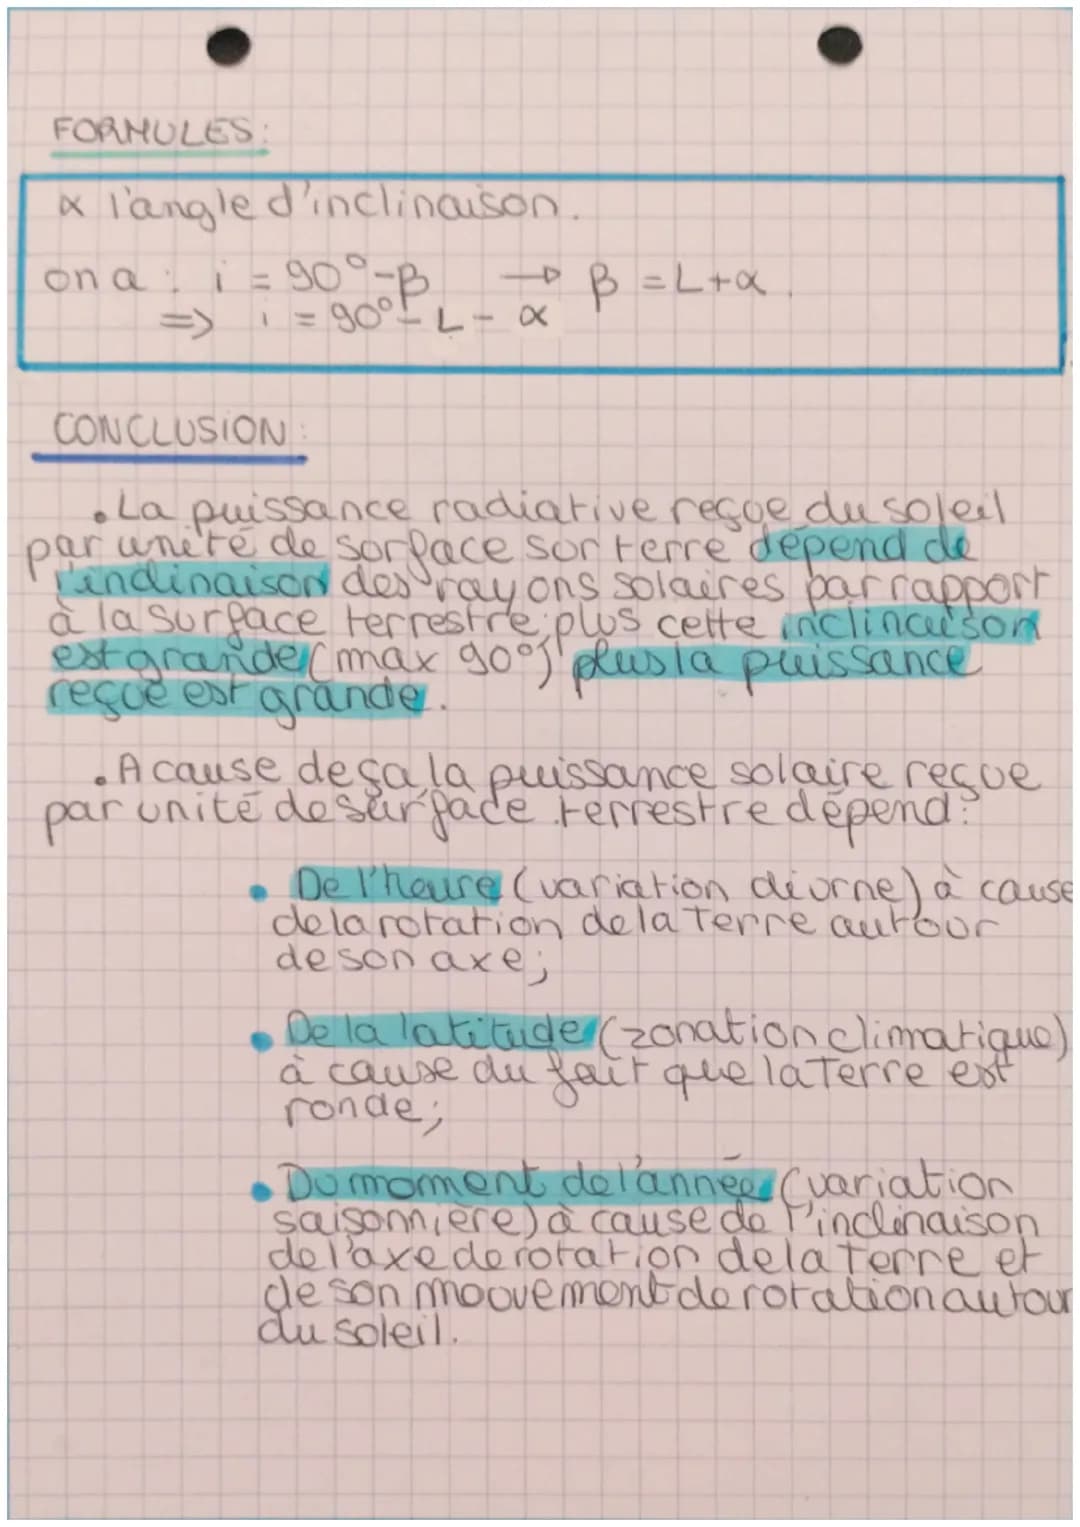 FORMULES:
α l'angle d'inclinaison.
on a : i = 90°-β → β = L+α.
=> i = 90° - L - α
CONCLUSION:
• La puissance radiative reçue du soleil
par unité de sorface sur terre dépend de
l'inclinaison des rayons solaires par rapport
à la surface terrestre; plus cette inclinaison
est grande (max 90°) plus la puissance
reçue est grande.
• A cause de ça, la puissance solaire reçue
par unité de surface terrestre dépend:
• De l'heure (variation diurne) à cause
de la rotation de la Terre autour
de son axe;
• De la latitude (zonation climatique)
à cause du fait que la Terre est
ronde;
• Du moment de l'année (variation
saisonnière) à cause de l'inclinaison
de l'axe de rotation de la Terre et
de son moouvement de rotation autour
du soleil.